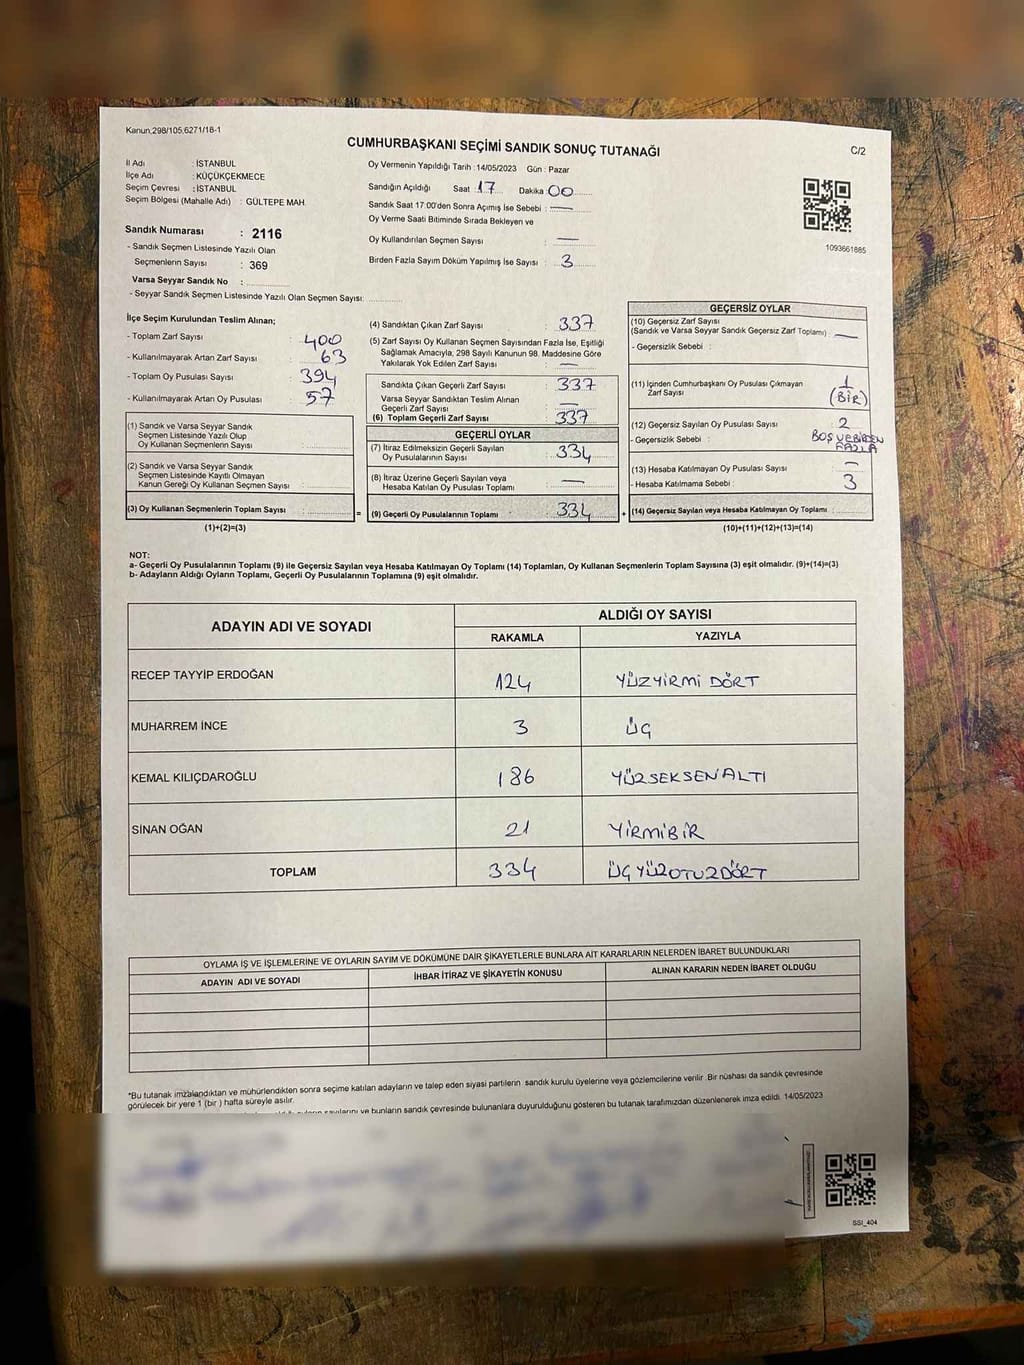 Kanun,298/105,6271/18-1
CUMHURBAŞKANI SEÇİMİ SANDIK SONUÇ TUTANAĞI
C/2
İl Adı : İSTANBUL
İlçe Adı : KÜÇÜKÇEKMECE
Seçim Çevresi : İSTANBUL
Seçim Bölgesi (Mahalle Adı) : GÜLTEPE MAH.
Oy Vermenin Yapıldığı Tarih :14/05/2023 Gün : Pazar
Sandığın Açıldığı Saat : 17 Dakika 00
Sandık Saat 17:00'den Sonra Açımış İse Sebebi : —
Oy Verme Saati Bitiminde Sırada Bekleyen ve
Oy Kullandırılan Seçmen Sayısı : —
Birden Fazla Sayım Döküm Yapılmış İse Sayısı : 3
1093661885
Sandık Numarası : 2116
- Sandık Seçmen Listesinde Yazılı Olan
Seçmenlerin Sayısı : 369
Varsa Seyyar Sandık No :
- Seyyar Sandık Seçmen Listesinde Yazılı Olan Seçmen Sayısı:
İlçe Seçim Kurulundan Teslim Alınan;
- Toplam Zarf Sayısı : 400
- Kullanılmayarak Artan Zarf Sayısı : 63
- Toplam Oy Pusulası Sayısı : 394
- Kullanılmayarak Artan Oy Pusulası : 57
(1) Sandık ve Varsa Seyyar Sandık
Seçmen Listesinde Yazılı Olup
Oy Kullanan Seçmenlerin Sayısı :
(2) Sandık ve Varsa Seyyar Sandık
Seçmen Listesinde Kayıtlı Olmayan
Kanun Gereği Oy Kullanan Seçmen Sayısı :
(3) Oy Kullanan Seçmenlerin Toplam Sayısı :
(1)+(2)=(3)
(4) Sandıktan Çıkan Zarf Sayısı : 337
(5) Zarf Sayısı Oy Kullanan Seçmen Sayısından Fazla İse, Eşitliği
Sağlamak Amacıyla, 298 Sayılı Kanunun 98. Maddesine Göre
Yakılarak Yok Edilen Zarf Sayısı : —
Sandıkta Çıkan Geçerli Zarf Sayısı : 337
Varsa Seyyar Sandıktan Teslim Alınan
Geçerli Zarf Sayısı : —
(6) Toplam Geçerli Zarf Sayısı : 337
GEÇERLİ OYLAR
(7) İtiraz Edilmeksizin Geçerli Sayılan
Oy Pusulalarının Sayısı : 334
(8) İtiraz Üzerine Geçerli Sayılan veya
Hesaba Katılan Oy Pusulası Toplamı : —
= (9) Geçerli Oy Pusulalarının Toplamı : 334 +
GEÇERSİZ OYLAR
(10) Geçersiz Zarf Sayısı
(Sandık ve Varsa Seyyar Sandık Geçersiz Zarf Toplamı) : —
- Geçersizlik Sebebi :
(11) İçinden Cumhurbaşkanı Oy Pusulası Çıkmayan
Zarf Sayısı : 1
(BİR)
(12) Geçersiz Sayılan Oy Pusulası Sayısı : 2
- Geçersizlik Sebebi : BOŞ VE BİRDEN
FAZLA
(13) Hesaba Katılmayan Oy Pusulası Sayısı : —
- Hesaba Katılmama Sebebi : 3
(14) Geçersiz Sayılan veya Hesaba Katılmayan Oy Toplamı :
(10)+(11)+(12)+(13)=(14)
NOT:
a- Geçerli Oy Pusulalarının Toplamı (9) ile Geçersiz Sayılan veya Hesaba Katılmayan Oy Toplamı (14) Toplamları, Oy Kullanan Seçmenlerin Toplam Sayısına (3) eşit olmalıdır. (9)+(14)=(3)
b- Adayların Aldığı Oyların Toplamı, Geçerli Oy Pusulalarının Toplamına (9) eşit olmalıdır.
ADAYIN ADI VE SOYADI
ALDIĞI OY SAYISI
RAKAMLA YAZIYLA
RECEP TAYYİP ERDOĞAN 124 YÜZYİRMİ DÖRT
MUHARREM İNCE 3 ÜÇ
KEMAL KILIÇDAROĞLU 186 YÜZSEKSENALTI
SİNAN OĞAN 21 YİRMİBİR
TOPLAM 334 ÜÇYÜZOTUZDÖRT
OYLAMA İŞ VE İŞLEMLERİNE VE OYLARIN SAYIM VE DÖKÜMÜNE DAİR ŞİKAYETLERLE BUNLARA AİT KARARLARIN NELERDEN İBARET BULUNDUKLARI
ADAYIN ADI VE SOYADI İHBAR İTİRAZ VE ŞİKAYETİN KONUSU ALINAN KARARIN NEDEN İBARET OLDUĞU
*Bu tutanak imzalandıktan ve mühürlendikten sonra seçime katılan adayların ve talep eden siyasi partilerin sandık kurulu üyelerine veya gözlemcilerine verilir .Bir nüshası da sandık çevresinde
görülecek bir yere 1 (bir ) hafta süreyle asılır.
ve bunların sandık çevresinde bulunanlara duyurulduğunu gösteren bu tutanak tarafımızdan düzenlenerek imza edildi. 14/05/2023
SSI_404